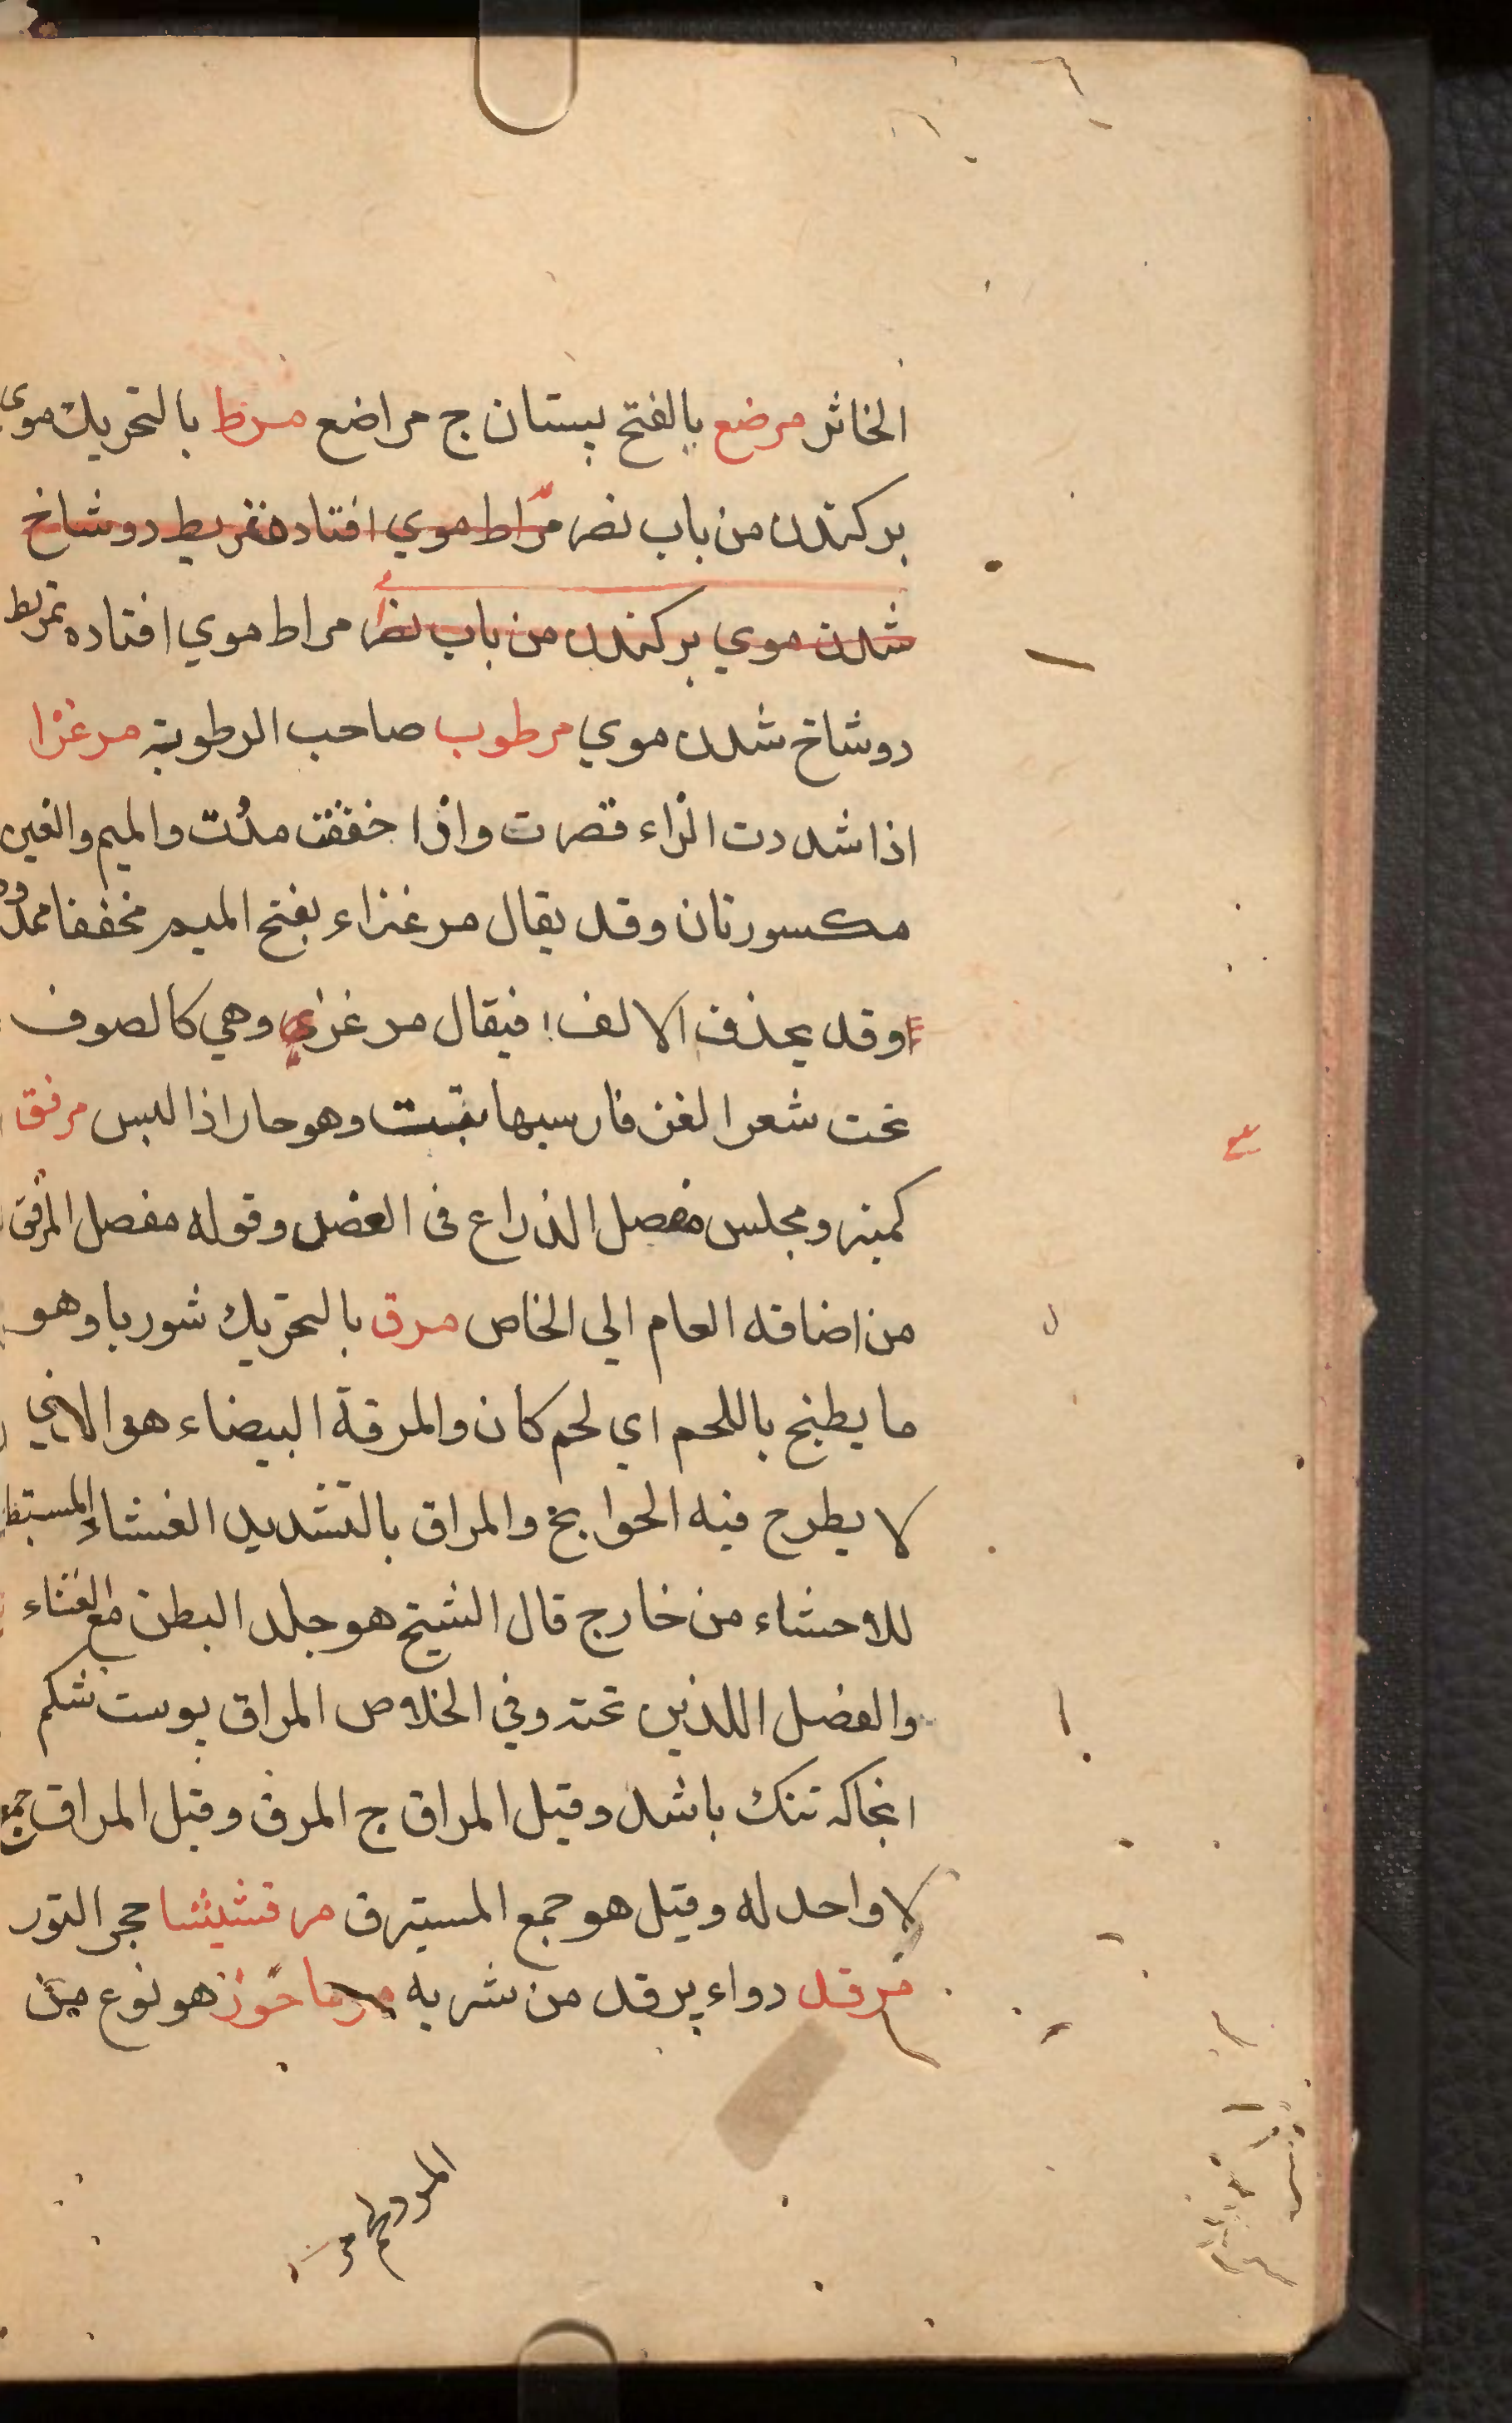 الخاثر مرضع بالفتح پستان ج مراضع مرط بالتحريك موى
بركندن من باب نصر مراط موي افتاده تمريط دوشاخ
شدن موي بركندن من باب نصر مراط موي افتاده تمريط
دوشاخ شدن موي مرطوب صاحب الرطوبة مرغزا
اذا شددت الزاء قصرت واذا خففت مدت والميم والغين
مكسورتان وقد يقال مرغزاء بفتح الميم مخففا ممدود
اوقد يحذف الالف فيقال مرغزي وهي كالصوف
تحت شعر الغز فارسيها بقبت وهو حار اذا لبس مرفق
كمنبر ومجلس مفصل الذراع فى العضد وقوله مفصل المرفق
من اضافه العام الي الخاص مرق بالتحريك شوربا وهو
ما يطبخ باللحم اي لحم كان والمرقة البيضاء هو الاني
لا يطرح فيه الحوايج والمراق بالتشديد الغشاء المستبطن
للاحشاء من خارج قال الشيخ هو جلد البطن مع الغشاء
والعضل اللذين تحته وفي الخلاص المراق پوست شكم
انجاكه تنك باشد وقيل المراق ج المرق وقيل المراق جمع
لا واحد له وقيل هو جمع المسترق مرقشيشا حجر النور
مرقد دواء يرقد من شربه مرماحوز هو نوع من